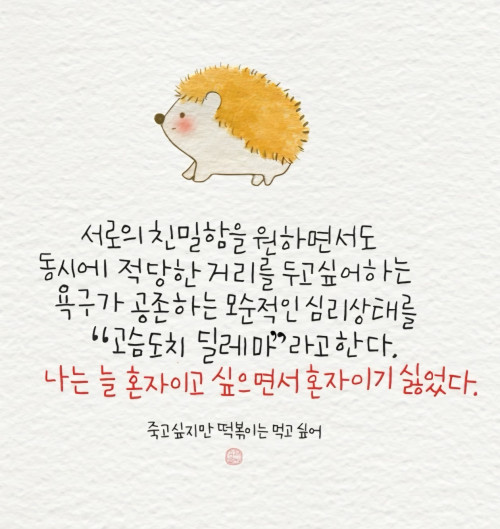 서로의 친밀함을 원하면서도
동시에 적당한 거리를 두고싶어하는
욕구가 공존하는 모순적인 심리상태를
“고슴도치 딜레마”라고한다.
나는 늘 혼자이고 싶으면서 혼자이기 싫었다.
죽고싶지만 떡볶이는 먹고 싶어